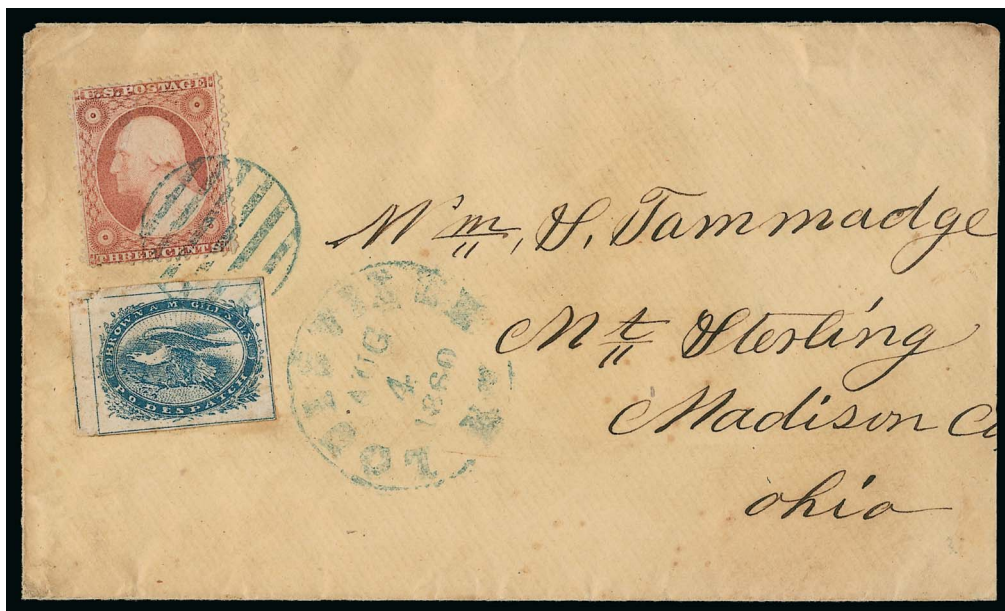 U.S. POSTAGE
THREE CENTS
BROWN & Mc GILL'S U.S.
P.O. DESPATCH
LOUISVILLE KY
AUG
4
1860
Wm. H. Tammadge
Mt Sterling
Madison Co
Ohio